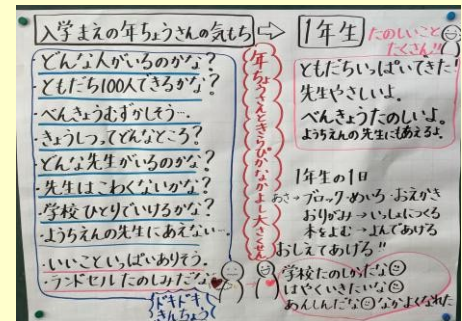 入学まえの年ちょうさんの気もち
・どんな人がいるのかな?
・ともだち100人できるかな?
・べんきょうむずかしそう…。
・きょうしつってどんなところ?
・どんな先生がいるのかな?
・先生はこわくないかな?
・学校ひとりでいけるかな?
・ようちえんの先生にあえない…
・いいこといっぱいありそう。
・ランドセルたのしみだな
ドキドキ
きんちょう
年ちょうさんときらぴかなかよし大さくせん
1年生
たのしいこと
たくさん!!
ともだちいっぱいできた!
先生やさしいよ。
べんきょうたのしいよ。
ようちえんの先生にもあえるよ。
1年生の1日
あさ→ブロック・めいろ・おえかき
おりがみ→いっしょにつくる
本をよむ→よんであげる
おしえてあげる!!
学校たのしみだな
はやくいきたいな
あんしんだな なかよくなれた